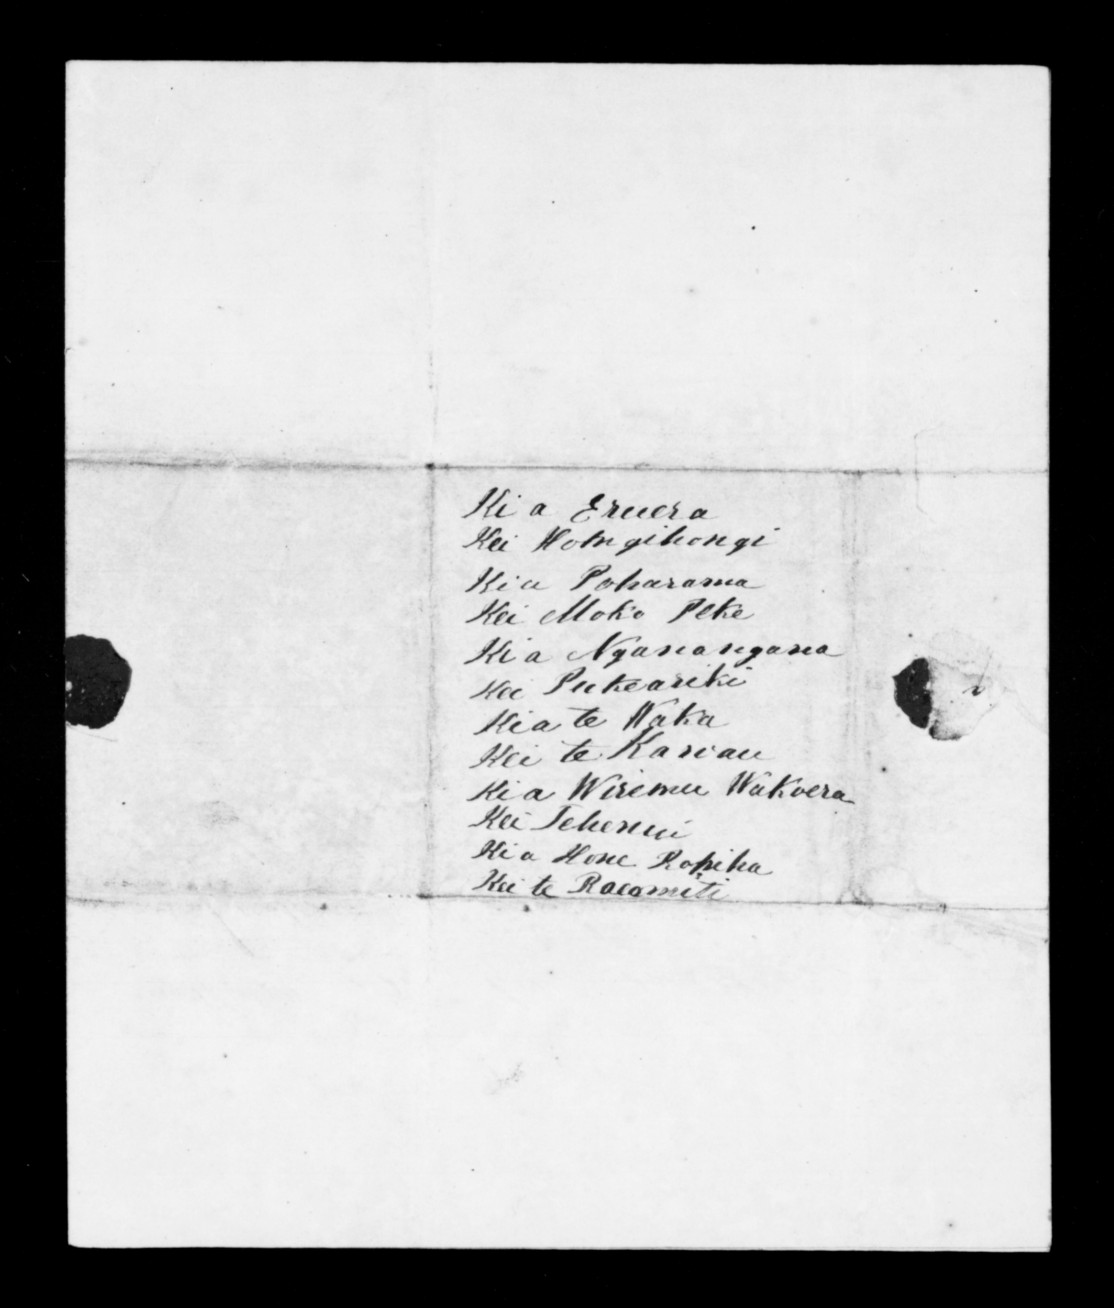 Ki a Eruera
Kei Hongihongi
Kia Poharama
Kei Moko Peke
Ki a Nganangana
Kei Pukeariki
Kia te Waka
Kei te Karvau
Ki a Wiremu Wakoera
Kei Tehenui
Ki a Hone Ropiha
Kei te Racomiti